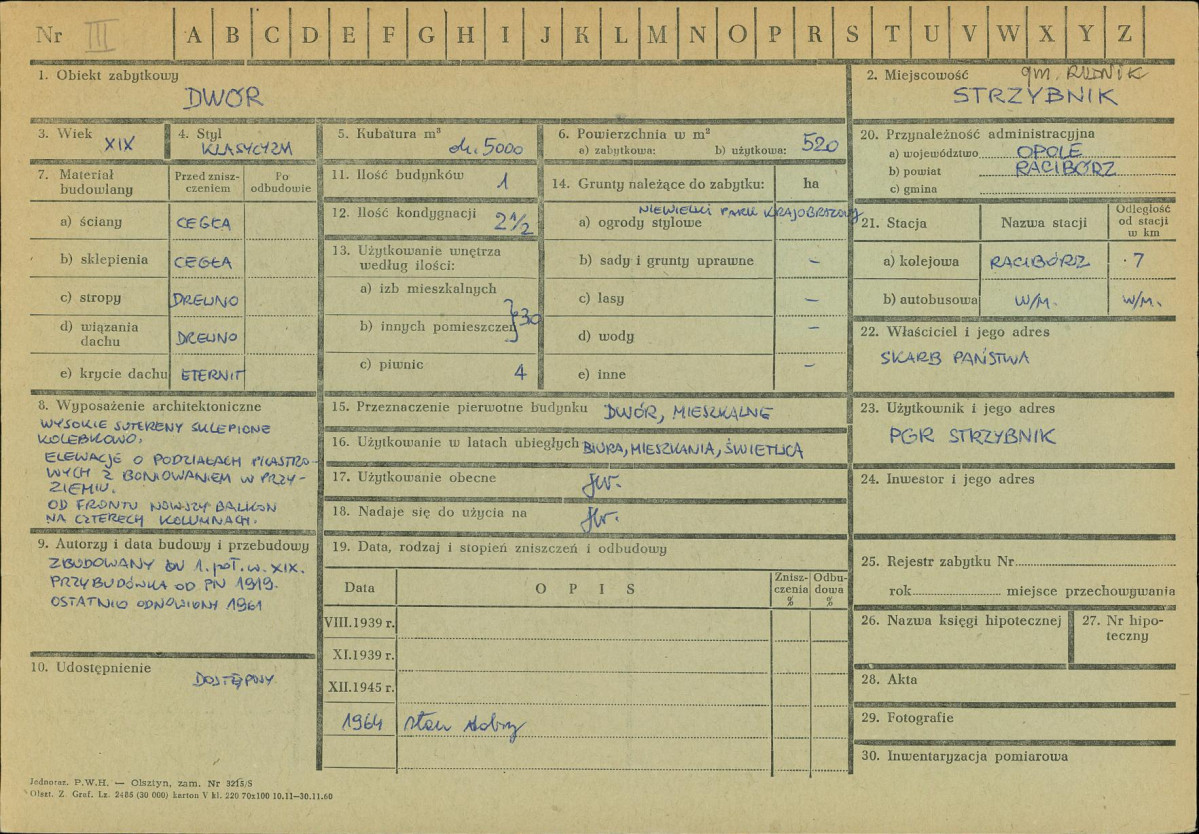 Nr III A B C D E F G H I J K L M N O P R S T U V W X Y Z
1. Obiekt zabytkowy
DWÓR
2. Miejscowość gm. RUDNIK
STRZYBNIK
3. Wiek
XIX
4. Styl
KLASYCYZM
5. Kubatura m³
ok. 5000
6. Powierzchnia w m²
a) zabytkowa: b) użytkowa: 520
7. Materiał budowlany
Przed zniszczeniem
Po odbudowie
a) ściany CEGŁA
b) sklepienia CEGŁA
c) stropy DREWNO
d) wiązania dachu DREWNO
e) krycie dachu ETERNIT
8. Wyposażenie architektoniczne
WYSOKIE SUTERENY SKLEPIONE
KOLEBKOWO.
ELEWACJE O PODZIAŁACH PILASTRO-
WYCH Z BONIOWANIEM W PRZY-
ZIEMIU.
OD FRONTU NOWSZY BALKON
NA CZTERECH KOLUMNACH.
9. Autorzy i data budowy i przebudowy
ZBUDOWANY W 1. poł. w. XIX.
PRZYBUDÓWKA OD PN 1919.
OSTATNIO ODNOWIONY 1961
10. Udostępnienie
DOSTĘPNY
11. Ilość budynków
1
12. Ilość kondygnacji
2 1/2
13. Użytkowanie wnętrza
według ilości:
a) izb mieszkalnych
b) innych pomieszczeń } 30
c) piwnic 4
14. Grunty należące do zabytku: ha
NIEWIELKI PARK KRAJOBRAZOWY
a) ogrody stylowe
b) sady i grunty uprawne –
c) lasy –
d) wody –
e) inne –
15. Przeznaczenie pierwotne budynku DWÓR, MIESZKALNE
16. Użytkowanie w latach ubiegłych BIURA, MIESZKANIA, ŚWIETLICA
17. Użytkowanie obecne jw.
18. Nadaje się do użycia na jw.
19. Data, rodzaj i stopień zniszczeń i odbudowy
Data
O P I S
Zniszczenia %
Odbudowa %
VIII.1939 r.
XI.1939 r.
XII.1945 r.
1964 stan dobry
20. Przynależność administracyjna
a) województwo OPOLE
b) powiat RACIBÓRZ
c) gmina
21. Stacja
Nazwa stacji
Odległość od stacji w km
a) kolejowa RACIBÓRZ 7
b) autobusowa W/M. W/M.
22. Właściciel i jego adres
SKARB PAŃSTWA
23. Użytkownik i jego adres
PGR STRZYBNIK
24. Inwestor i jego adres
25. Rejestr zabytku Nr
rok miejsce przechowywania
26. Nazwa księgi hipotecznej
27. Nr hipo-
teczny
28. Akta
29. Fotografie
30. Inwentaryzacja pomiarowa
Jednoraz. P.W.H. — Olsztyn, zam. Nr 3215/S
Olszt. Z. Graf. Lz. 2485 (30 000) karton V kl. 220 70x100 10.11—30.11.60